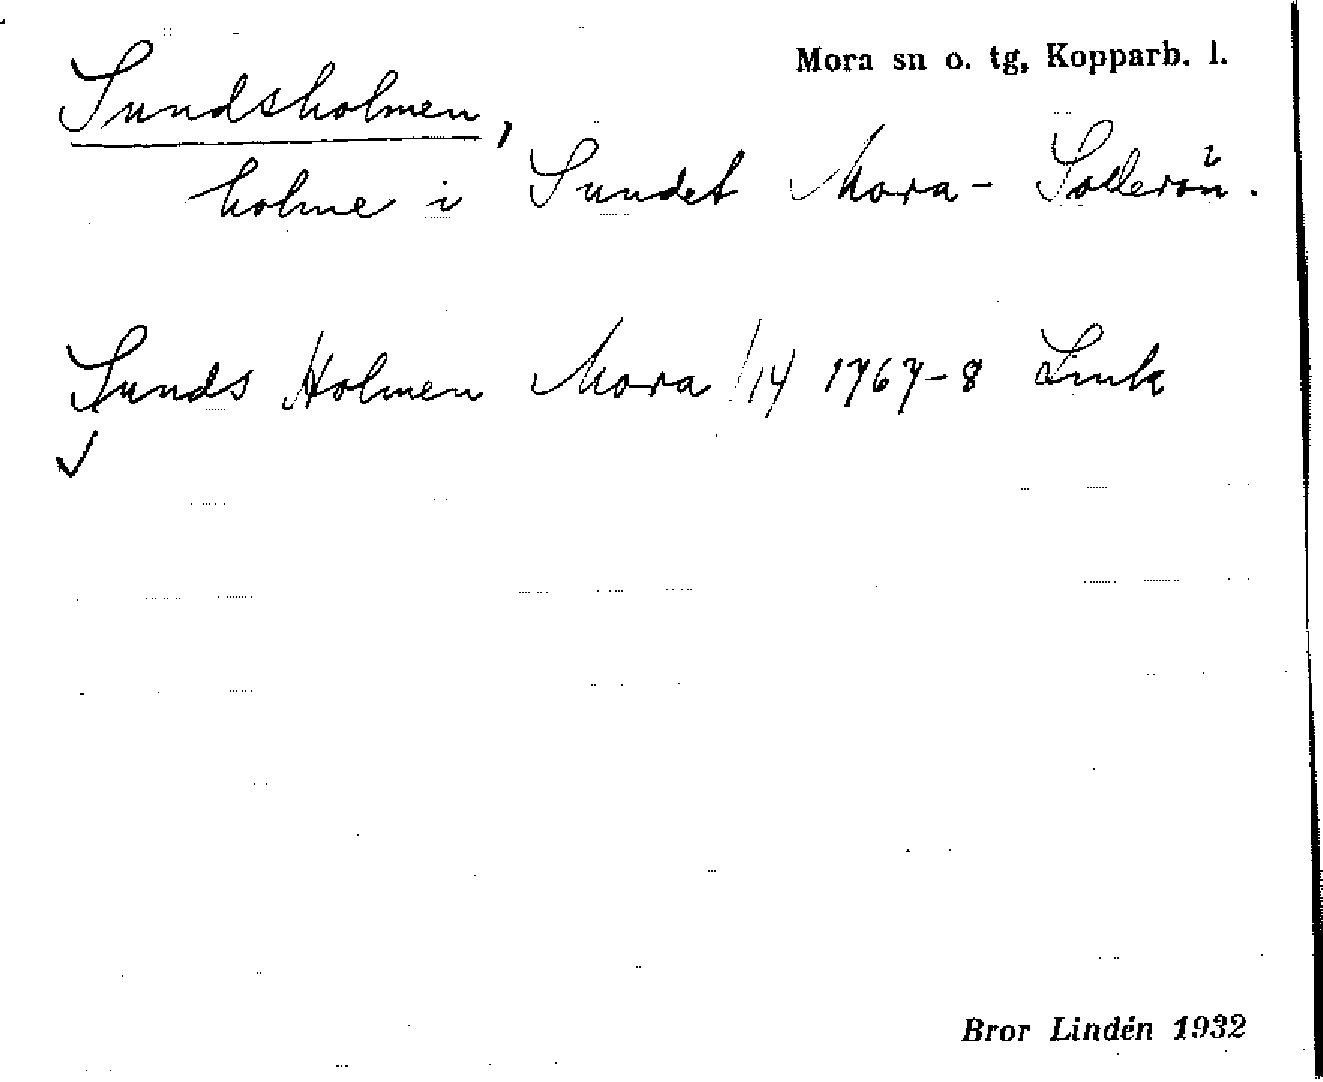 Mora sn o. tg, Kopparb. l.
Sundsholmen,
holme i Sundet Mora - Sollerön.
Sunds Holmen Mora /14/ 1767-8 Lmk
Bror Lindén 1932